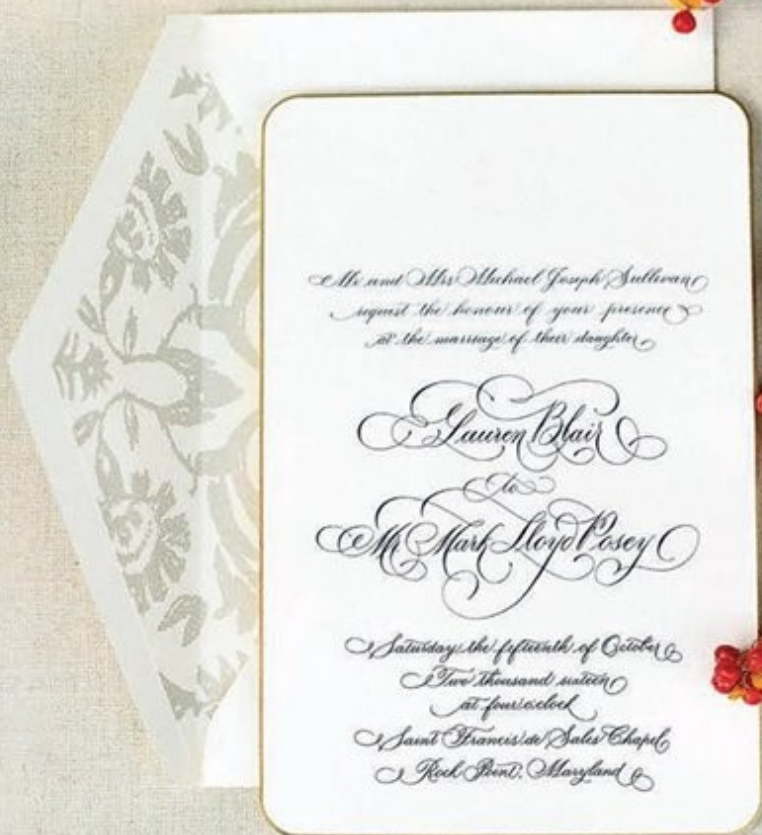 Mr and Mrs Michael Joseph Sullivan
request the honour of your presence
at the marriage of their daughter
Lauren Blair
to
Mr Mark Lloyd Posey
Saturday the fifteenth of October
Two thousand sixteen
at four o'clock
Saint Francis de Sales Chapel
Rock Point, Maryland